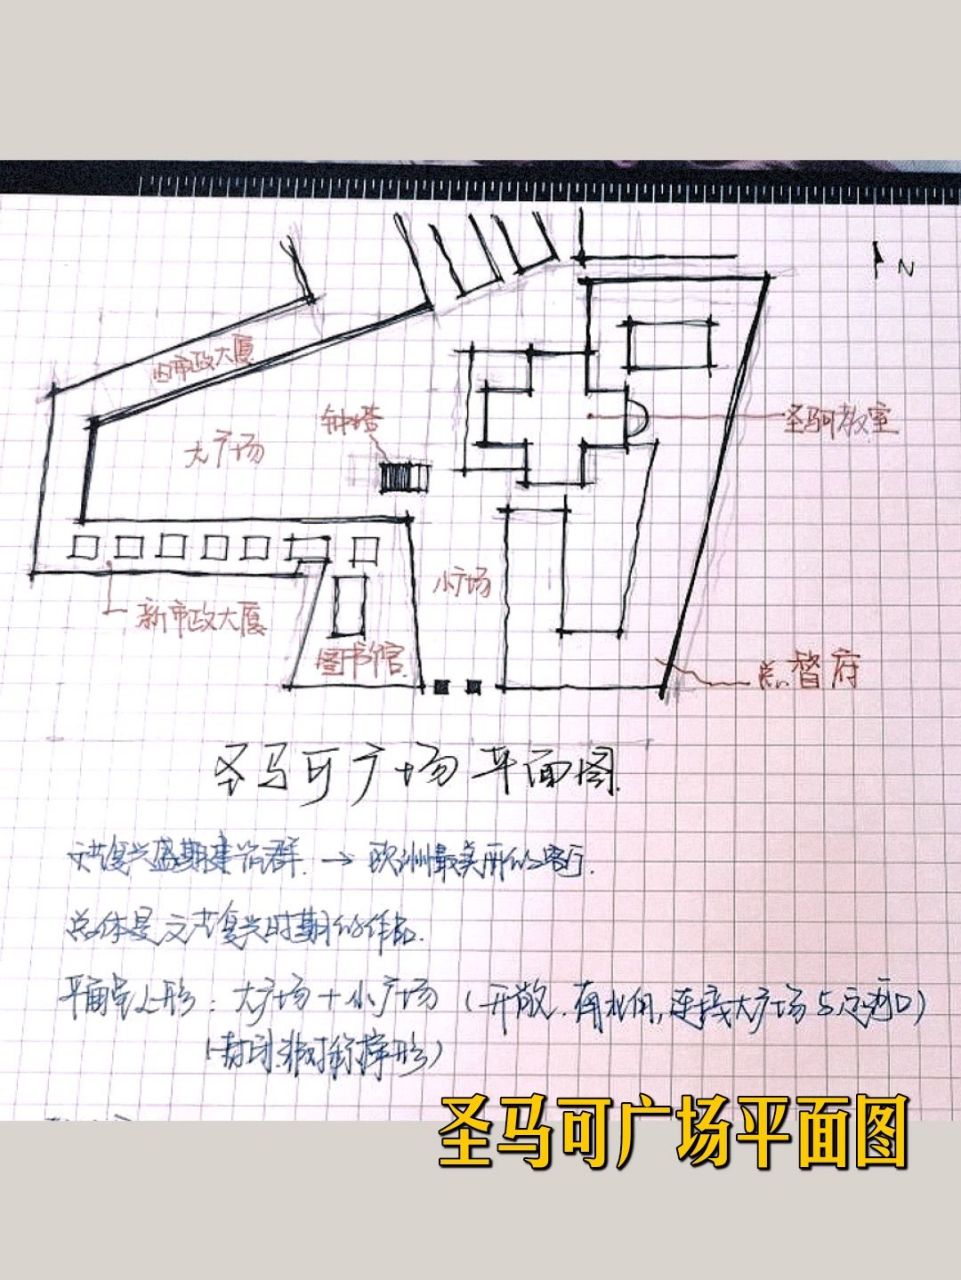 N
旧市政大厦
钟塔
圣马可教室
大广场
小广场
新市政大厦
图书馆
总督府
圣马可广场平面图
文艺复兴盛期建筑群 → 欧洲最美丽的客厅.
总体是文艺复兴时期的作品.
平面呈L形：大广场+小广场（开敞.有水面,连接大广场与
（封闭.非对称梯形）
圣马可广场平面图